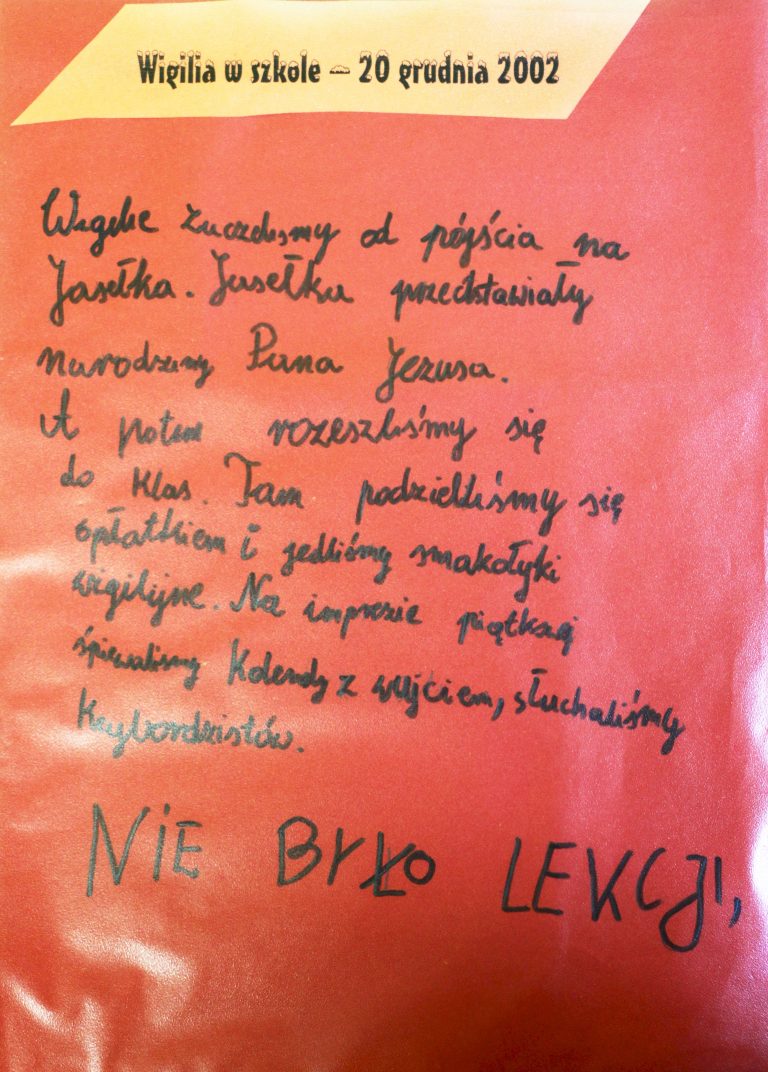 Wigilia w szkole – 20 grudnia 2002
Wigilie zaczelismy od pójścia na
Jasełka. Jasełka przedstawiały
narodziny Pana Jezusa.
A potem rozeszliśmy się
do klas. Tam podzieliliśmy się
opłatkiem i jedliśmy smakołyki
wigilijne. Na imprezie piątkzaj
śpiewalismy Kolendy z wujciem, słuchaliśmy
Keybordzistów.
NIE BYŁO LEKCJI,